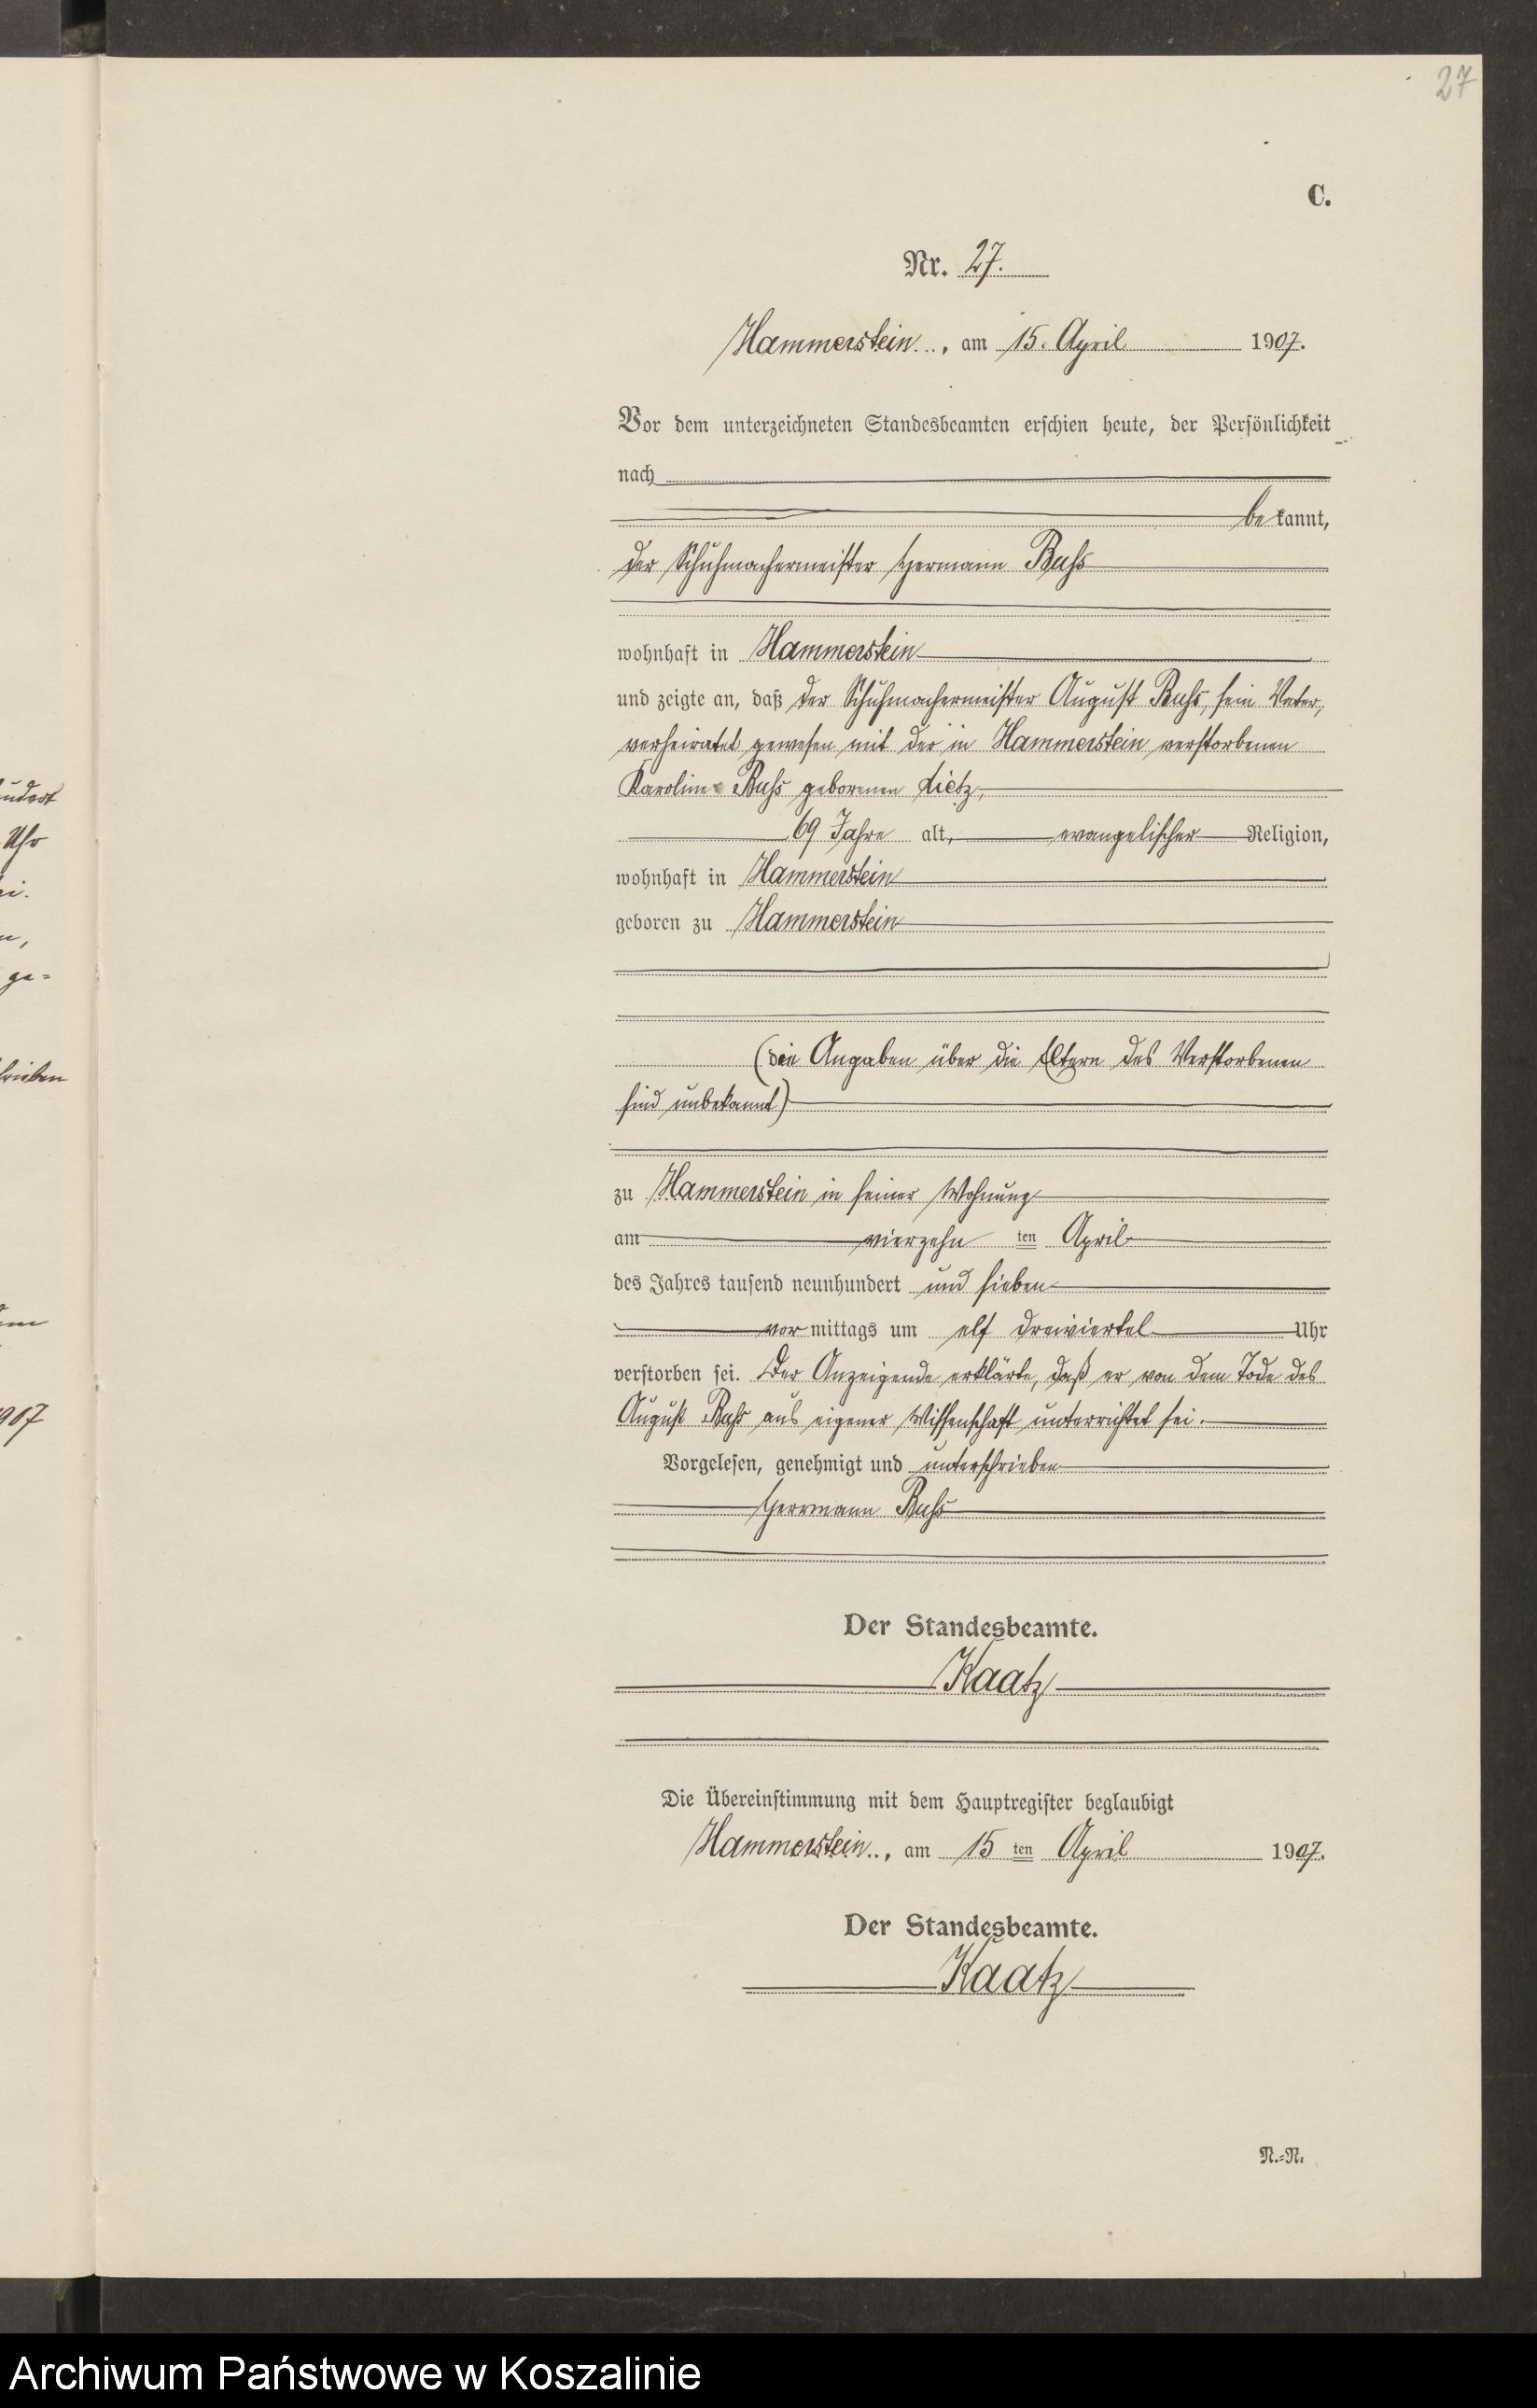 27
C.
Nr. 27.
Hammerstein, am 15. April 1907.
Vor dem unterzeichneten Standesbeamten erschien heute, der Persönlichkeit
nach
bekannt,
der Schuhmachermeister Hermann Buhs
wohnhaft in Hammerstein
und zeigte an, daß der Schuhmachermeister August Buhs, sein Vater,
verheiratet gewesen mit der in Hammerstein verstorbenen
Karoline Buhs geborenen Lietz,
69 Jahre alt, evangelischer Religion,
wohnhaft in Hammerstein
geboren zu Hammerstein
(die Angaben über die Eltern des Verstorbenen
sind unbekannt)
zu Hammerstein in seiner Wohnung
am vierzehn ten April
des Jahres tausend neunhundert und sieben
vormittags um elf dreiviertel Uhr
verstorben sei. Der Anzeigende erklärte, daß er von dem Tode des
August Buhs aus eigener Wissenschaft unterrichtet sei.
Vorgelesen, genehmigt und unterschrieben
Herrmann Buhs
Der Standesbeamte.
Kaatz
Die Übereinstimmung mit dem Hauptregister beglaubigt
Hammerstein, am 15 ten April 1907.
Der Standesbeamte.
Kaatz
N.-N.
Uhr
ge=
Archiwum Państwowe w Koszalinie